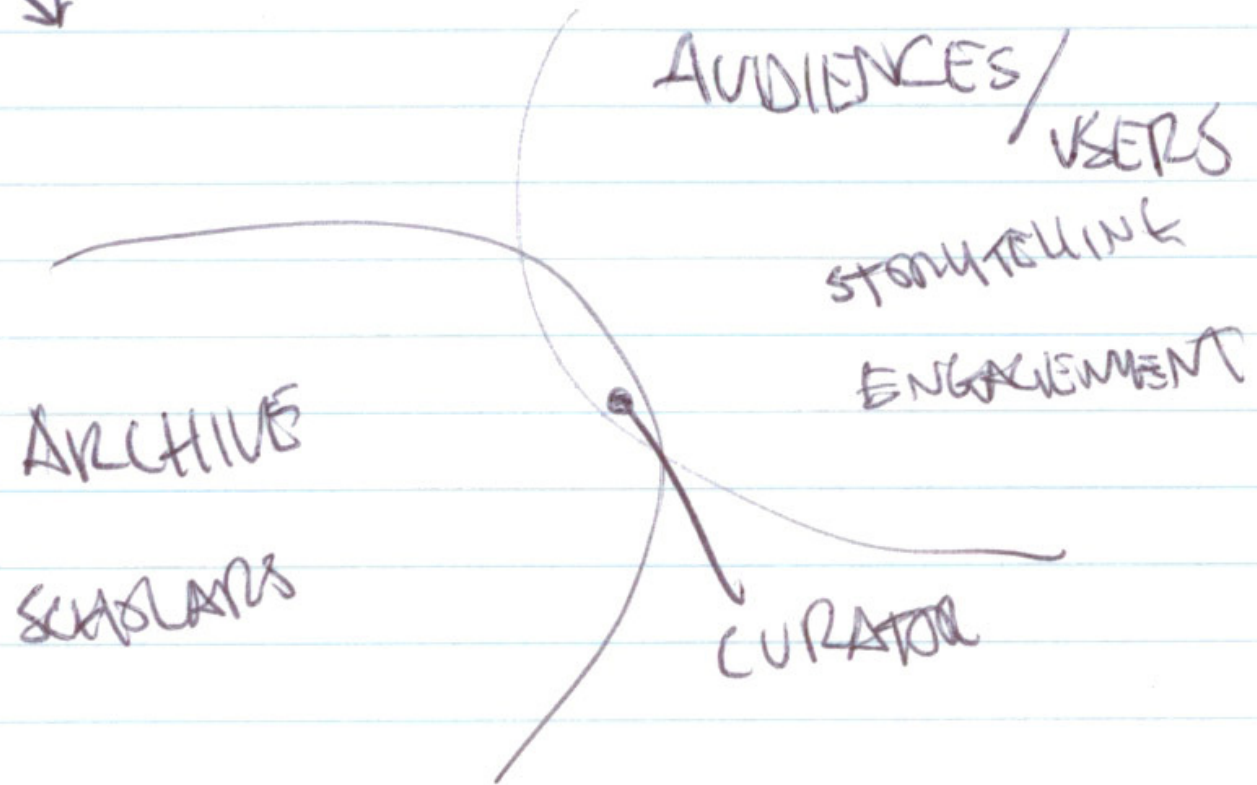 AUDIENCES/
USERS
STORYTELLING
ENGAGEMENT
ARCHIVE
SCHOLARS
CURATOR